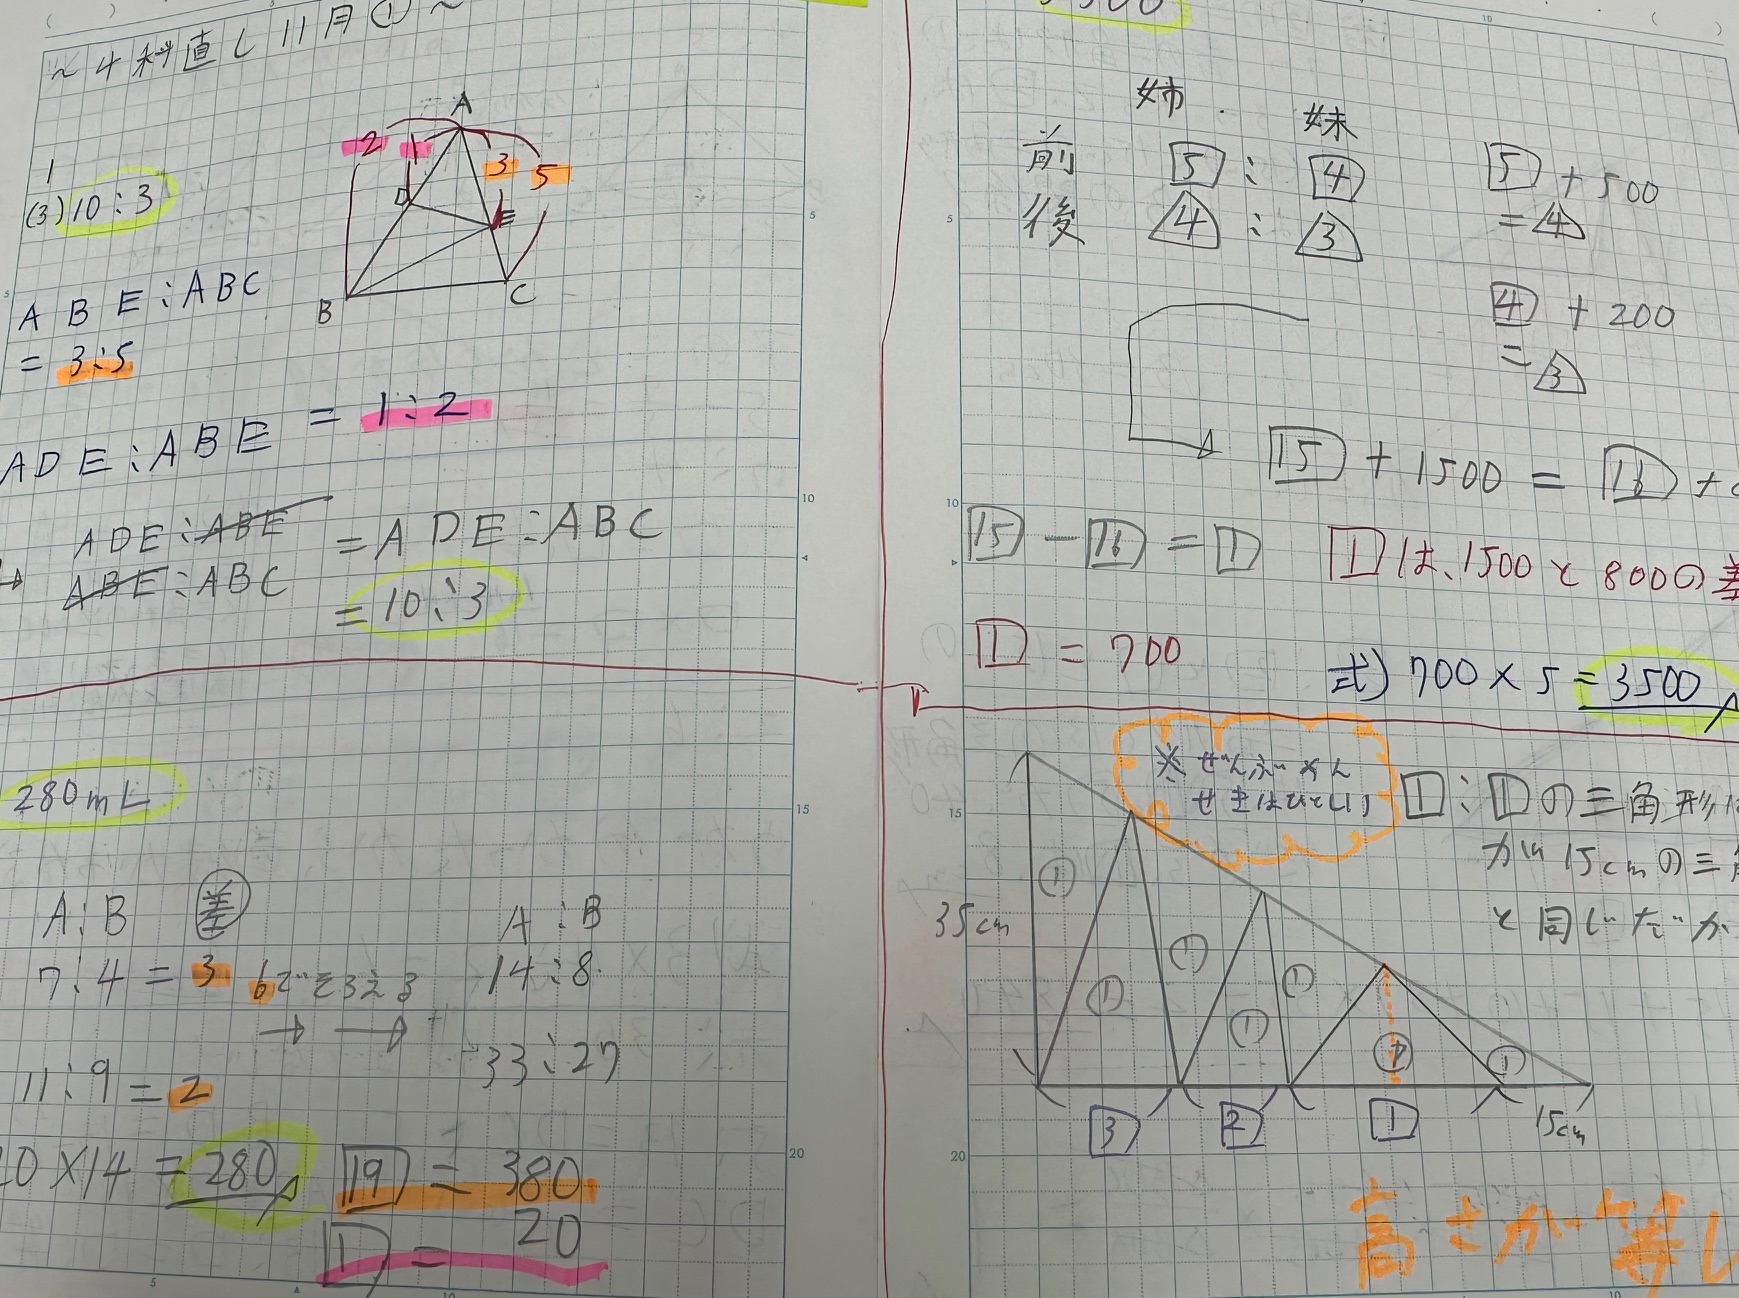 ~4科直し11月①~
1
(3) 10:3
A
2 1 3 5
D
E
B
C
ABE:ABC
= 3:5
ADE:ABE = 1:2
ADE:ABE
ABE:ABC
= ADE:ABC
= 10:3
280mL
A:B 差
7:4 = 3 6でそろえる
11:9 = 2
A:B
14:8
33:27
0×14 = 280
19 = 380
1 = 20
姉 妹
前 5 : 4
後 4 : 3
5 + 500
= 4
4 + 200
= 3
15 + 1500 = 16 +
15 - 16 = 1
1は、1500と800の差
1 = 700
式) 700×5 = 3500
※ぜんぶめん
せきはひとしい
1:1の三角形は
が 15cmの三
と同じだか
35cm
① ① ① ① ① ① ①
3 2 1 15cm
高さが等し